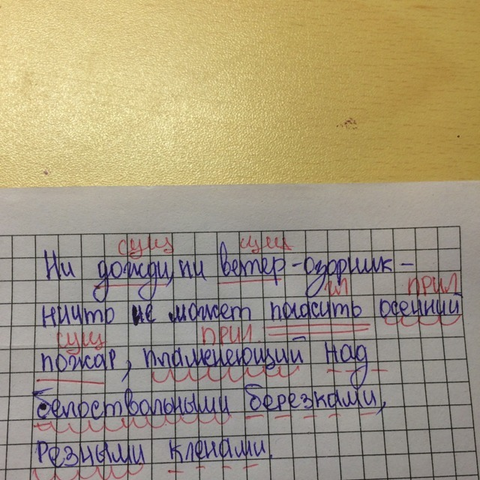 сущ сущ
Ни дожди, ни ветер-озорник -
гл прил
ничто не может погасить осенний
сущ прил
пожар, пламенеющий над
белоствольными березками,
резными кленами.